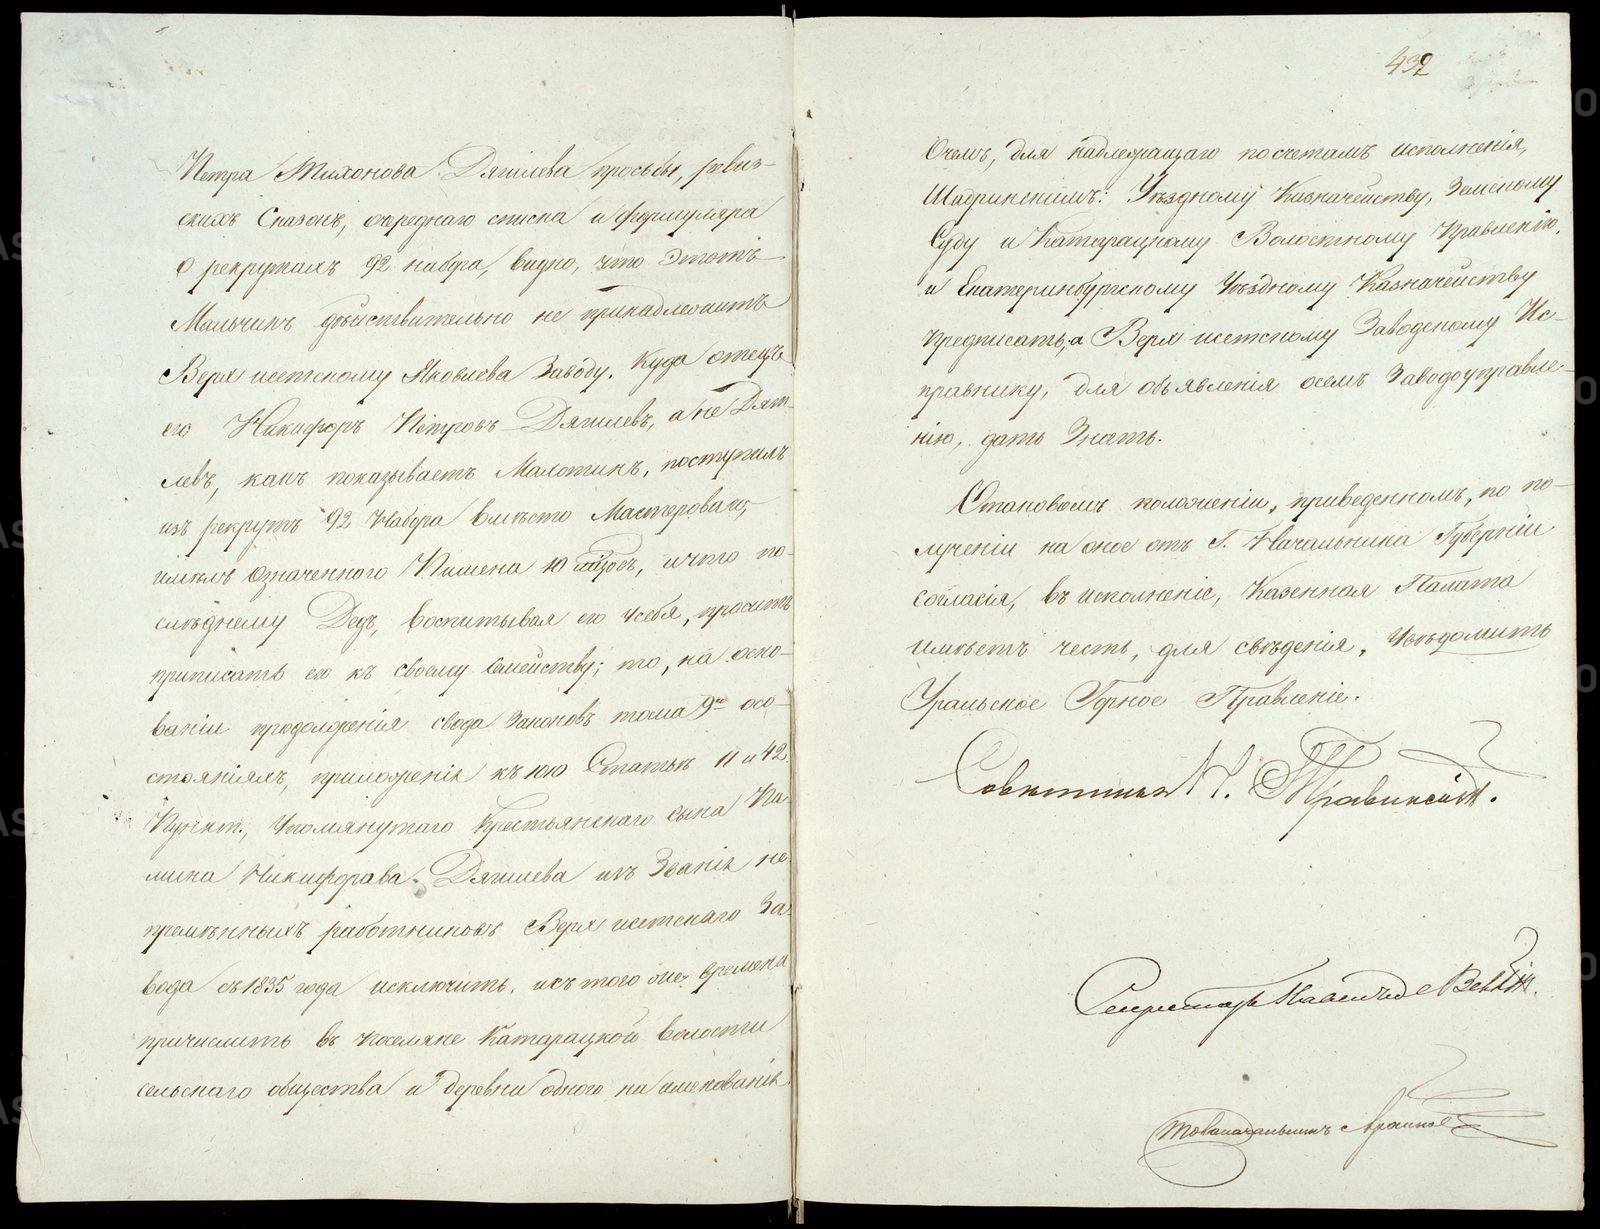 Петра Тихонова Дягилева просьбы, ревиз-
скихъ Сказокъ, очереднаго списка и формуляра
о рекрутахъ 92 набора, видно, что этотъ
Мальчикъ дѣйствительно не принадлежитъ
Верхъ исетскому Яковлева Заводу, куда отецъ
его Никифоръ Петровъ Дягилевъ, а не Дят-
левъ, какъ показываетъ Малютинъ, поступилъ
изъ рекрутъ 92 Набора вмѣсто Мастероваго,
имѣлъ Означеннаго Пимена 10 и что по-
слѣднему Дедъ, воспитывая его у себя, проситъ
приписать его къ своему Семейству; то, на осно-
ваніи продолженія свода Законовъ тома 9го осо-
стояніяхъ, приложенія къ 10ю Статьи 11 и 42
Пункт., Упомянутаго Крестьянскаго сына Пи
мина Никифорова Дягилева изъ Званія не
премѣнныхъ работниковъ Верхъ исетскаго За
вода съ 1835 года исключить, и съ того же времени
причислить въ поселяне Катарацкой волости
сельскаго общества и деревни одного на именованія.
432
О чемъ, для надлежащаго по счетамъ исполненія,
Шадринскимъ: Уѣздному Казначейству, Земскому
Суду и Катарацкому Волостному Правленію,
и Екатеринбургскому Уѣздному Казначейству
предписать, а Верхъ исетскому Заводскому Ис-
правнику, для объявленія о семъ Заводоуправле-
нію, дать Знать.
О таковомъ положеніи, приведенномъ, по по-
лученіи на оное отъ Г. Начальника Губерніи
согласія, въ исполненіе, Казенная Палата
имѣетъ честь, для свѣденія, Увѣдомить
Уральское Горное Правленіе.
Совѣтникъ Н.
Секретарь
Столоначальникъ